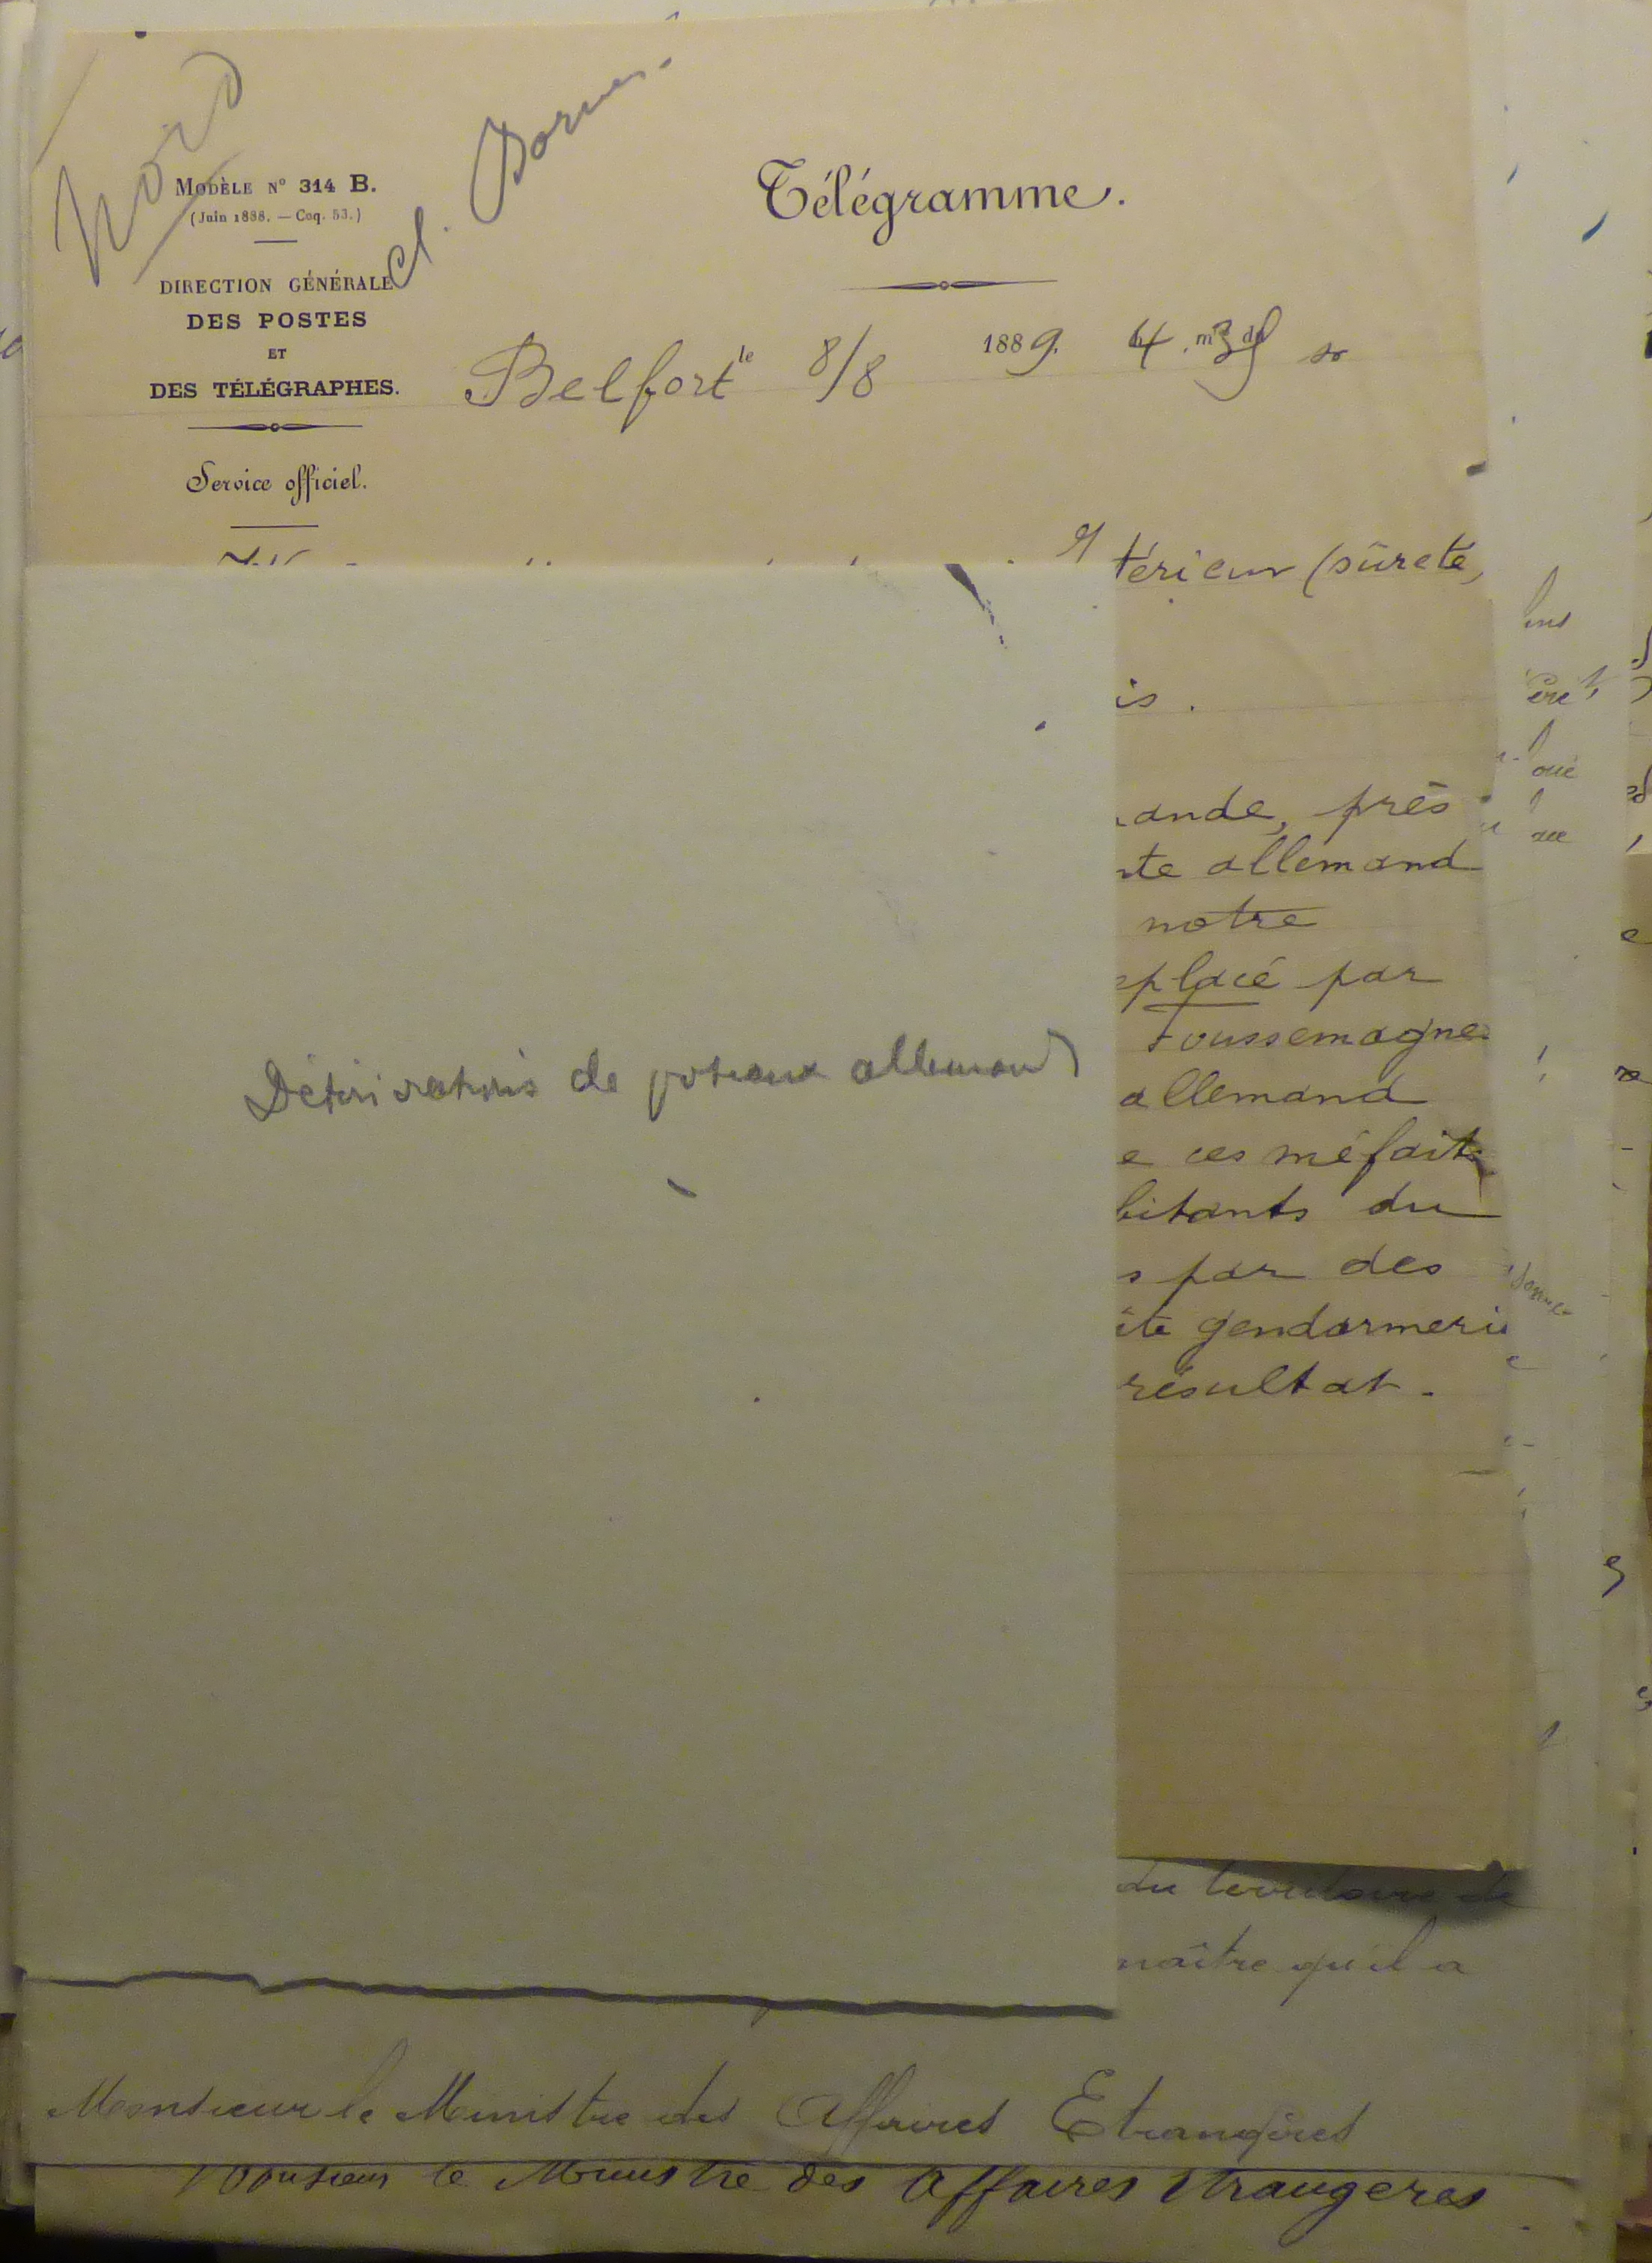 Nord
Cl. Dorme
MODÈLE N° 314 B.
(Juin 1888. — Coq. 53.)
DIRECTION GÉNÉRALE
DES POSTES
ET
DES TÉLÉGRAPHES.
Service officiel.
Télégramme.
Belfort le 8/8 1889. 4
térieur (sûreté,
is.
ande, près
te allemand
notre
placé par
Toussemagne
allemand
e ces méfaits
bitants du
s par des
ité gendarmerie
résultat.
Détériorations de poteaux allemands
du territoire de
naître qu'il a
Monsieur le Ministre des Affaires Etrangères
Monsieur le Ministre des Affaires Etrangeres